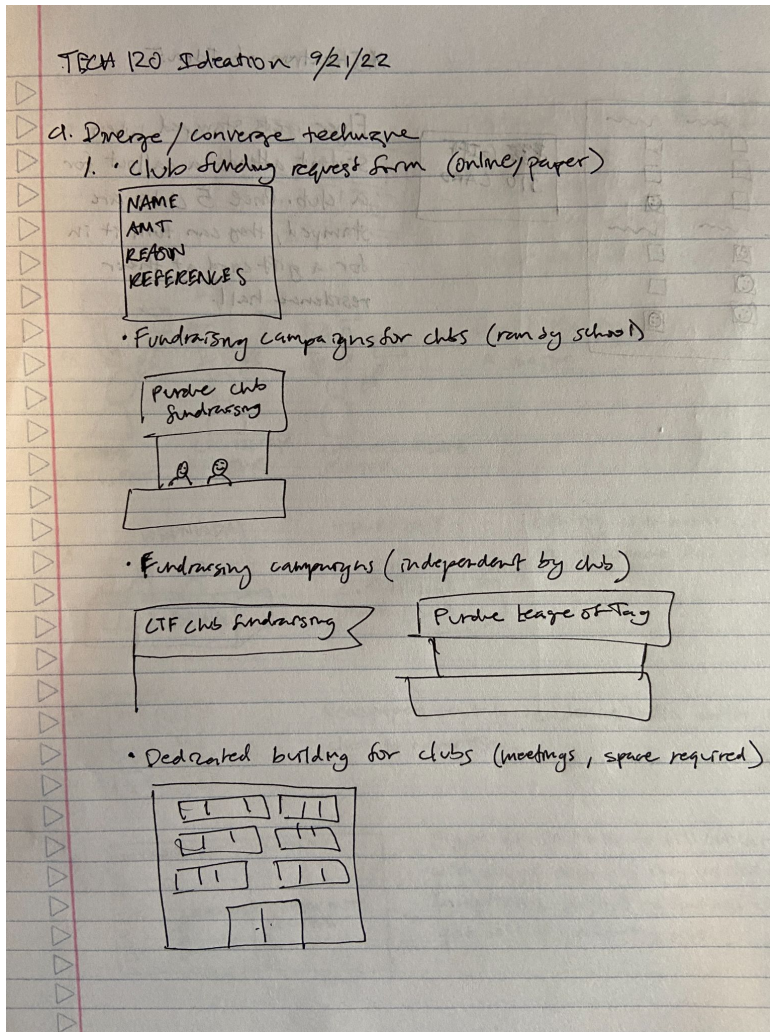 TECH 120 Ideation 9/21/22
a. Diverge/converge technique
1. • Club funding request form (online/paper)
NAME
AMT
REASON
REFERENCES
• Fundraising campaigns for clubs (ran by school)
Purdue club
fundraising
• Fundraising campaigns (independent by club)
CTF club fundraising
Purdue League of Tag
• Dedicated building for clubs (meetings, space required)